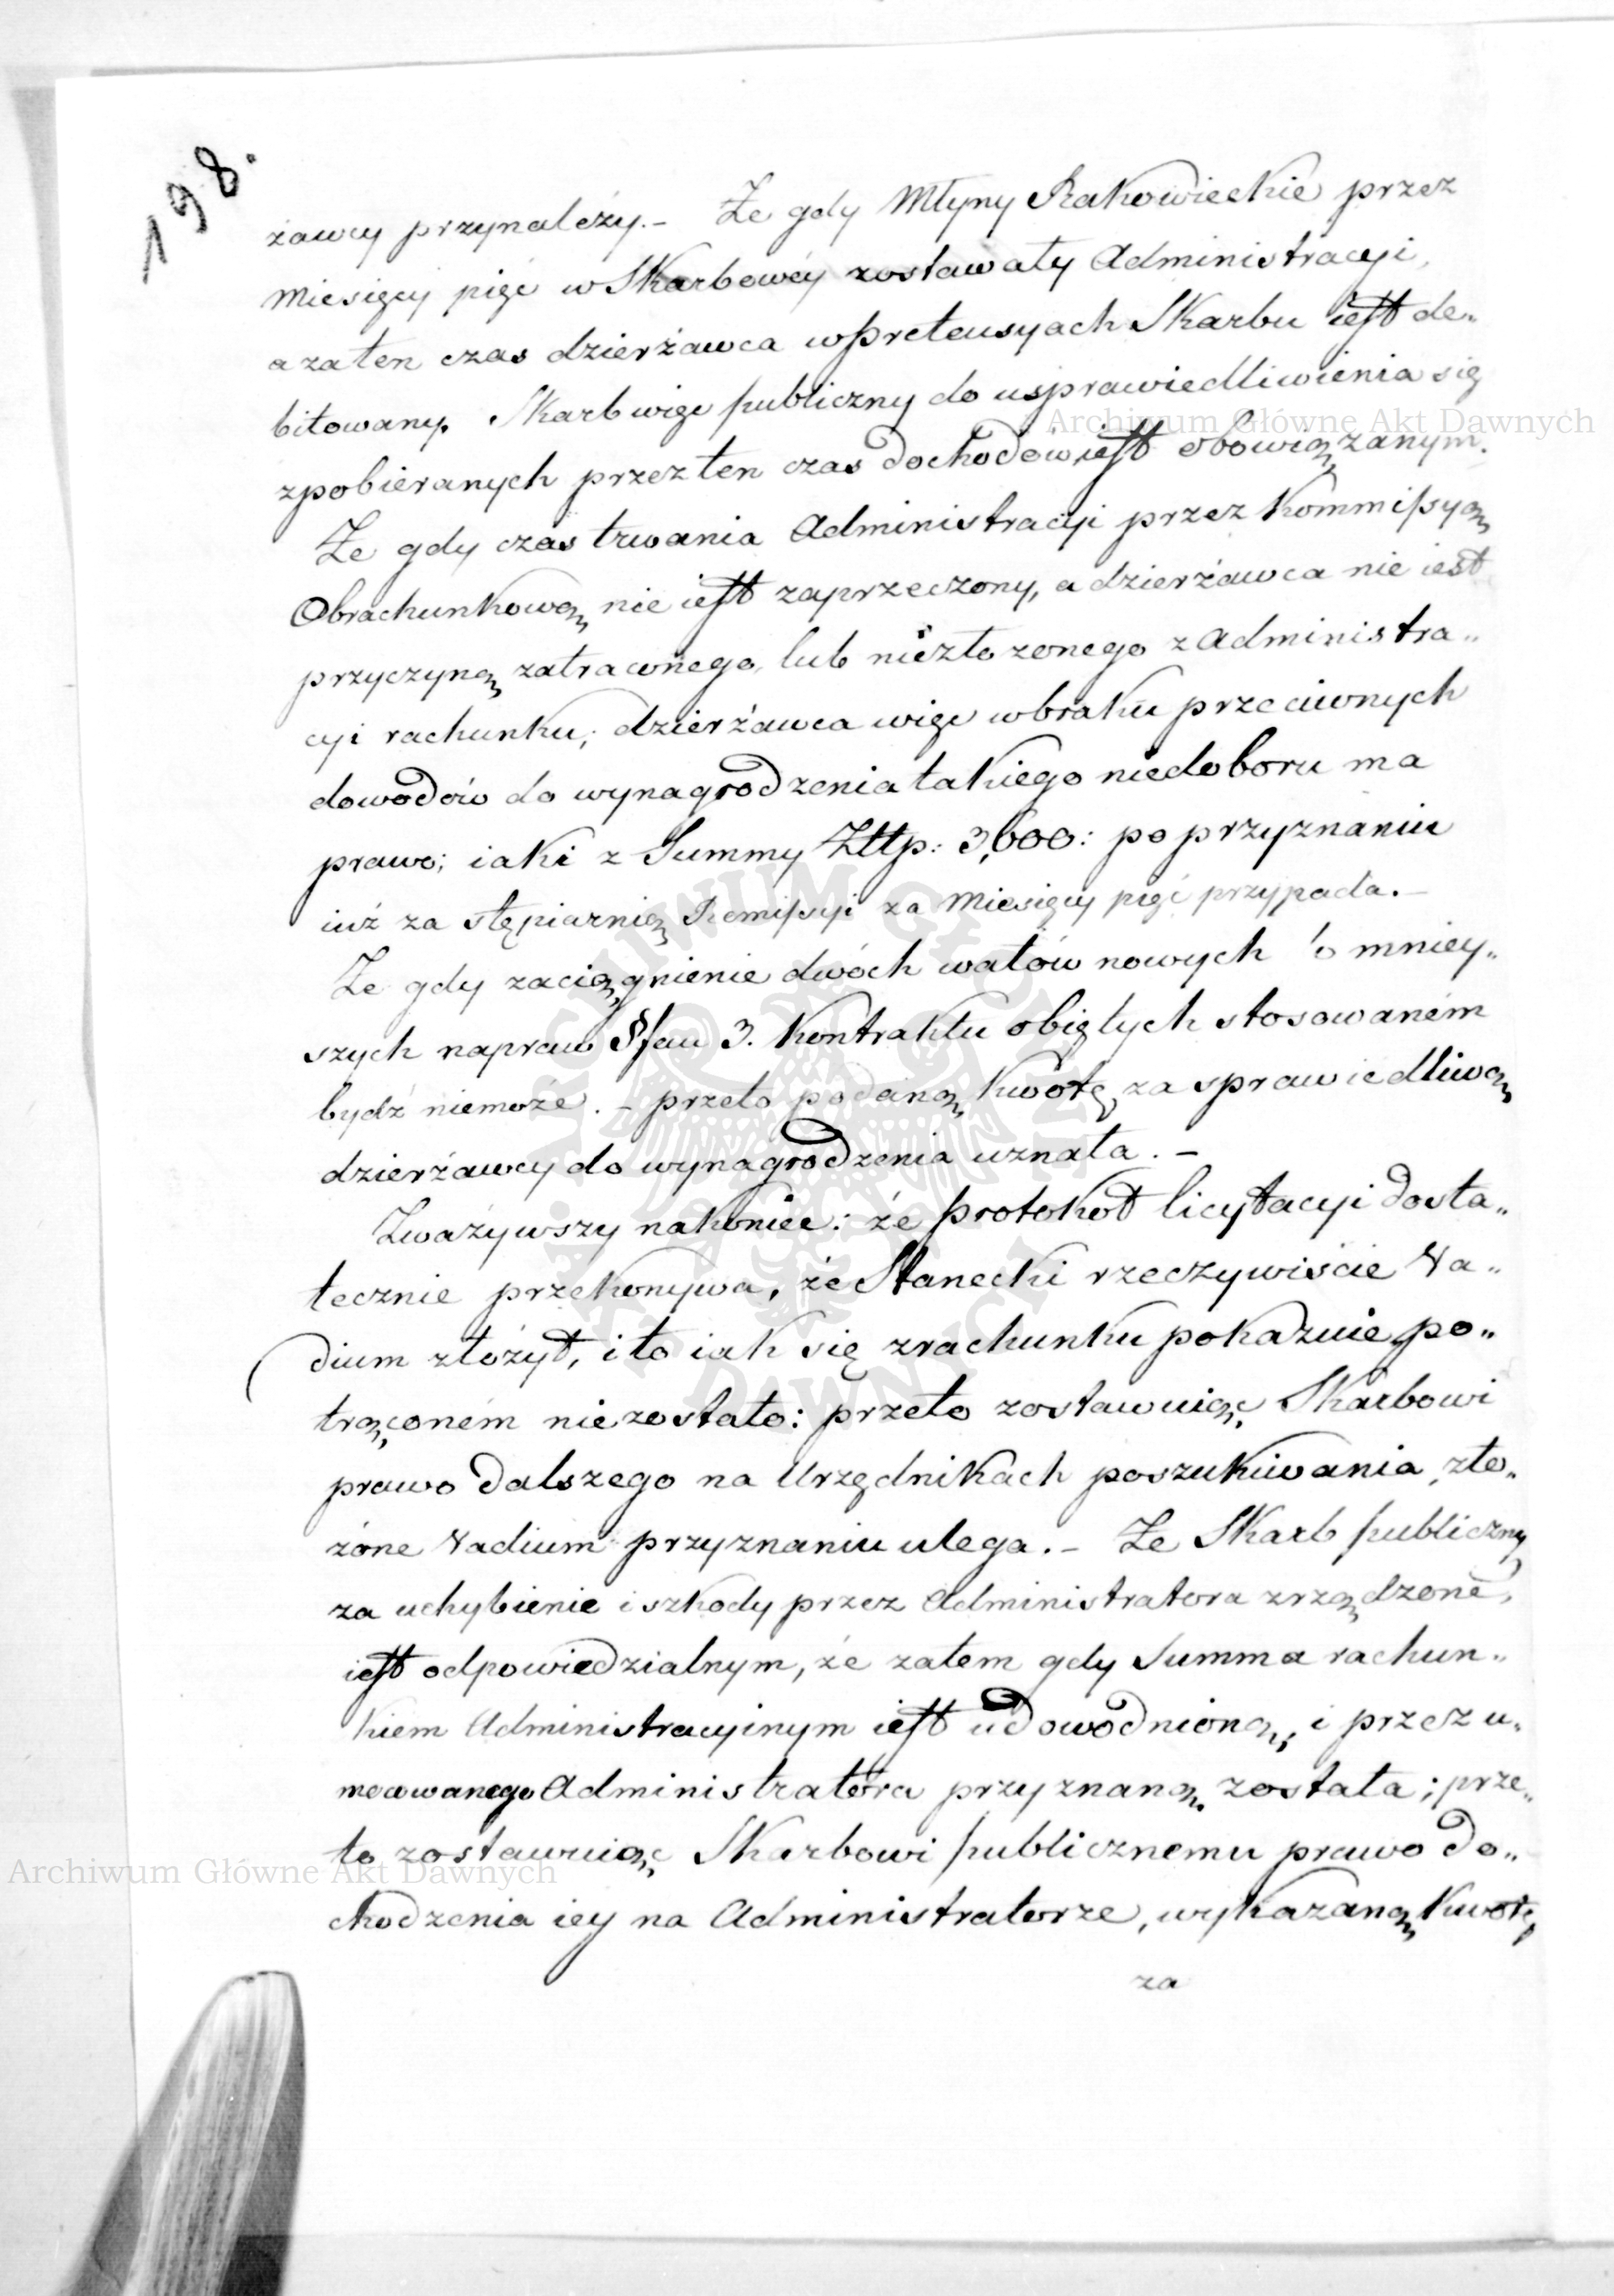 198.
żawcy przynależy. – Że gdy Młyny Rakowieckie przez
Miesięcy pięć w Skarbowéy zostawały Administracyi,
a za ten czas dzierżawca w pretensyach Skarbu iest de„
bitowany. Skarb więc publiczny do usprawiedliwienia się
z pobieranych przez ten czas dochodów iest obowiązanym.
Że gdy czas trwania Administracyi przez Kommissyą
Obrachunkową nie iest zaprzeczony, a dzierżawca nie iest
przyczyną zatraconego lub niezłożonego z Administra„
cyi rachunku; dzierżawca więc w braku przeciwnych
dowodów do wynagrodzenia takiego niedoboru ma
prawo; iaki z Summy Złłp: 3,600: po przyznaniu
iuż za stępiarnią Remissyi za Miesięcy pięć przypada. –
Że gdy zaciągnienie dwóch wałów nowych do mniey„
szych napraw §fem 3. Kontraktu obiętych stosowaném
bydź niemoże. – przeto podaną Kwotę za sprawiedliwą
dzierżawcy do wynagrodzenia uznała. –
Zważywszy nakoniec: że protokół licytacyi dosta„
tecznie przekonywa, że Stanecki rzeczywiście Va„
dium złożył, i to iak się z rachunku pokazuie, po„
trąconém niezostało: przeto zostawuiąc Skarbowi
prawo dalszego na Urzędnikach poszukiwania, zło„
żone Vadium przyznaniu ulega. – Że Skarb publiczny
za uchybienie i szkody przez Administratora zrządzone,
iest odpowiedzialnym, że zatem gdy Summa rachun„
kiem Administracyinym iest udowodnioną, i przez u„
mocowanego Administratora przyznaną została; prze„
to zostawuiąc Skarbowi publicznemu prawo do„
chodzenia iey na Administratorze, wykazaną Kwotę
za
Archiwum Główne Akt Dawnych
Archiwum Główne Akt Dawnych
ARCHIWUM GŁÓWNE AKT DAWNYCH